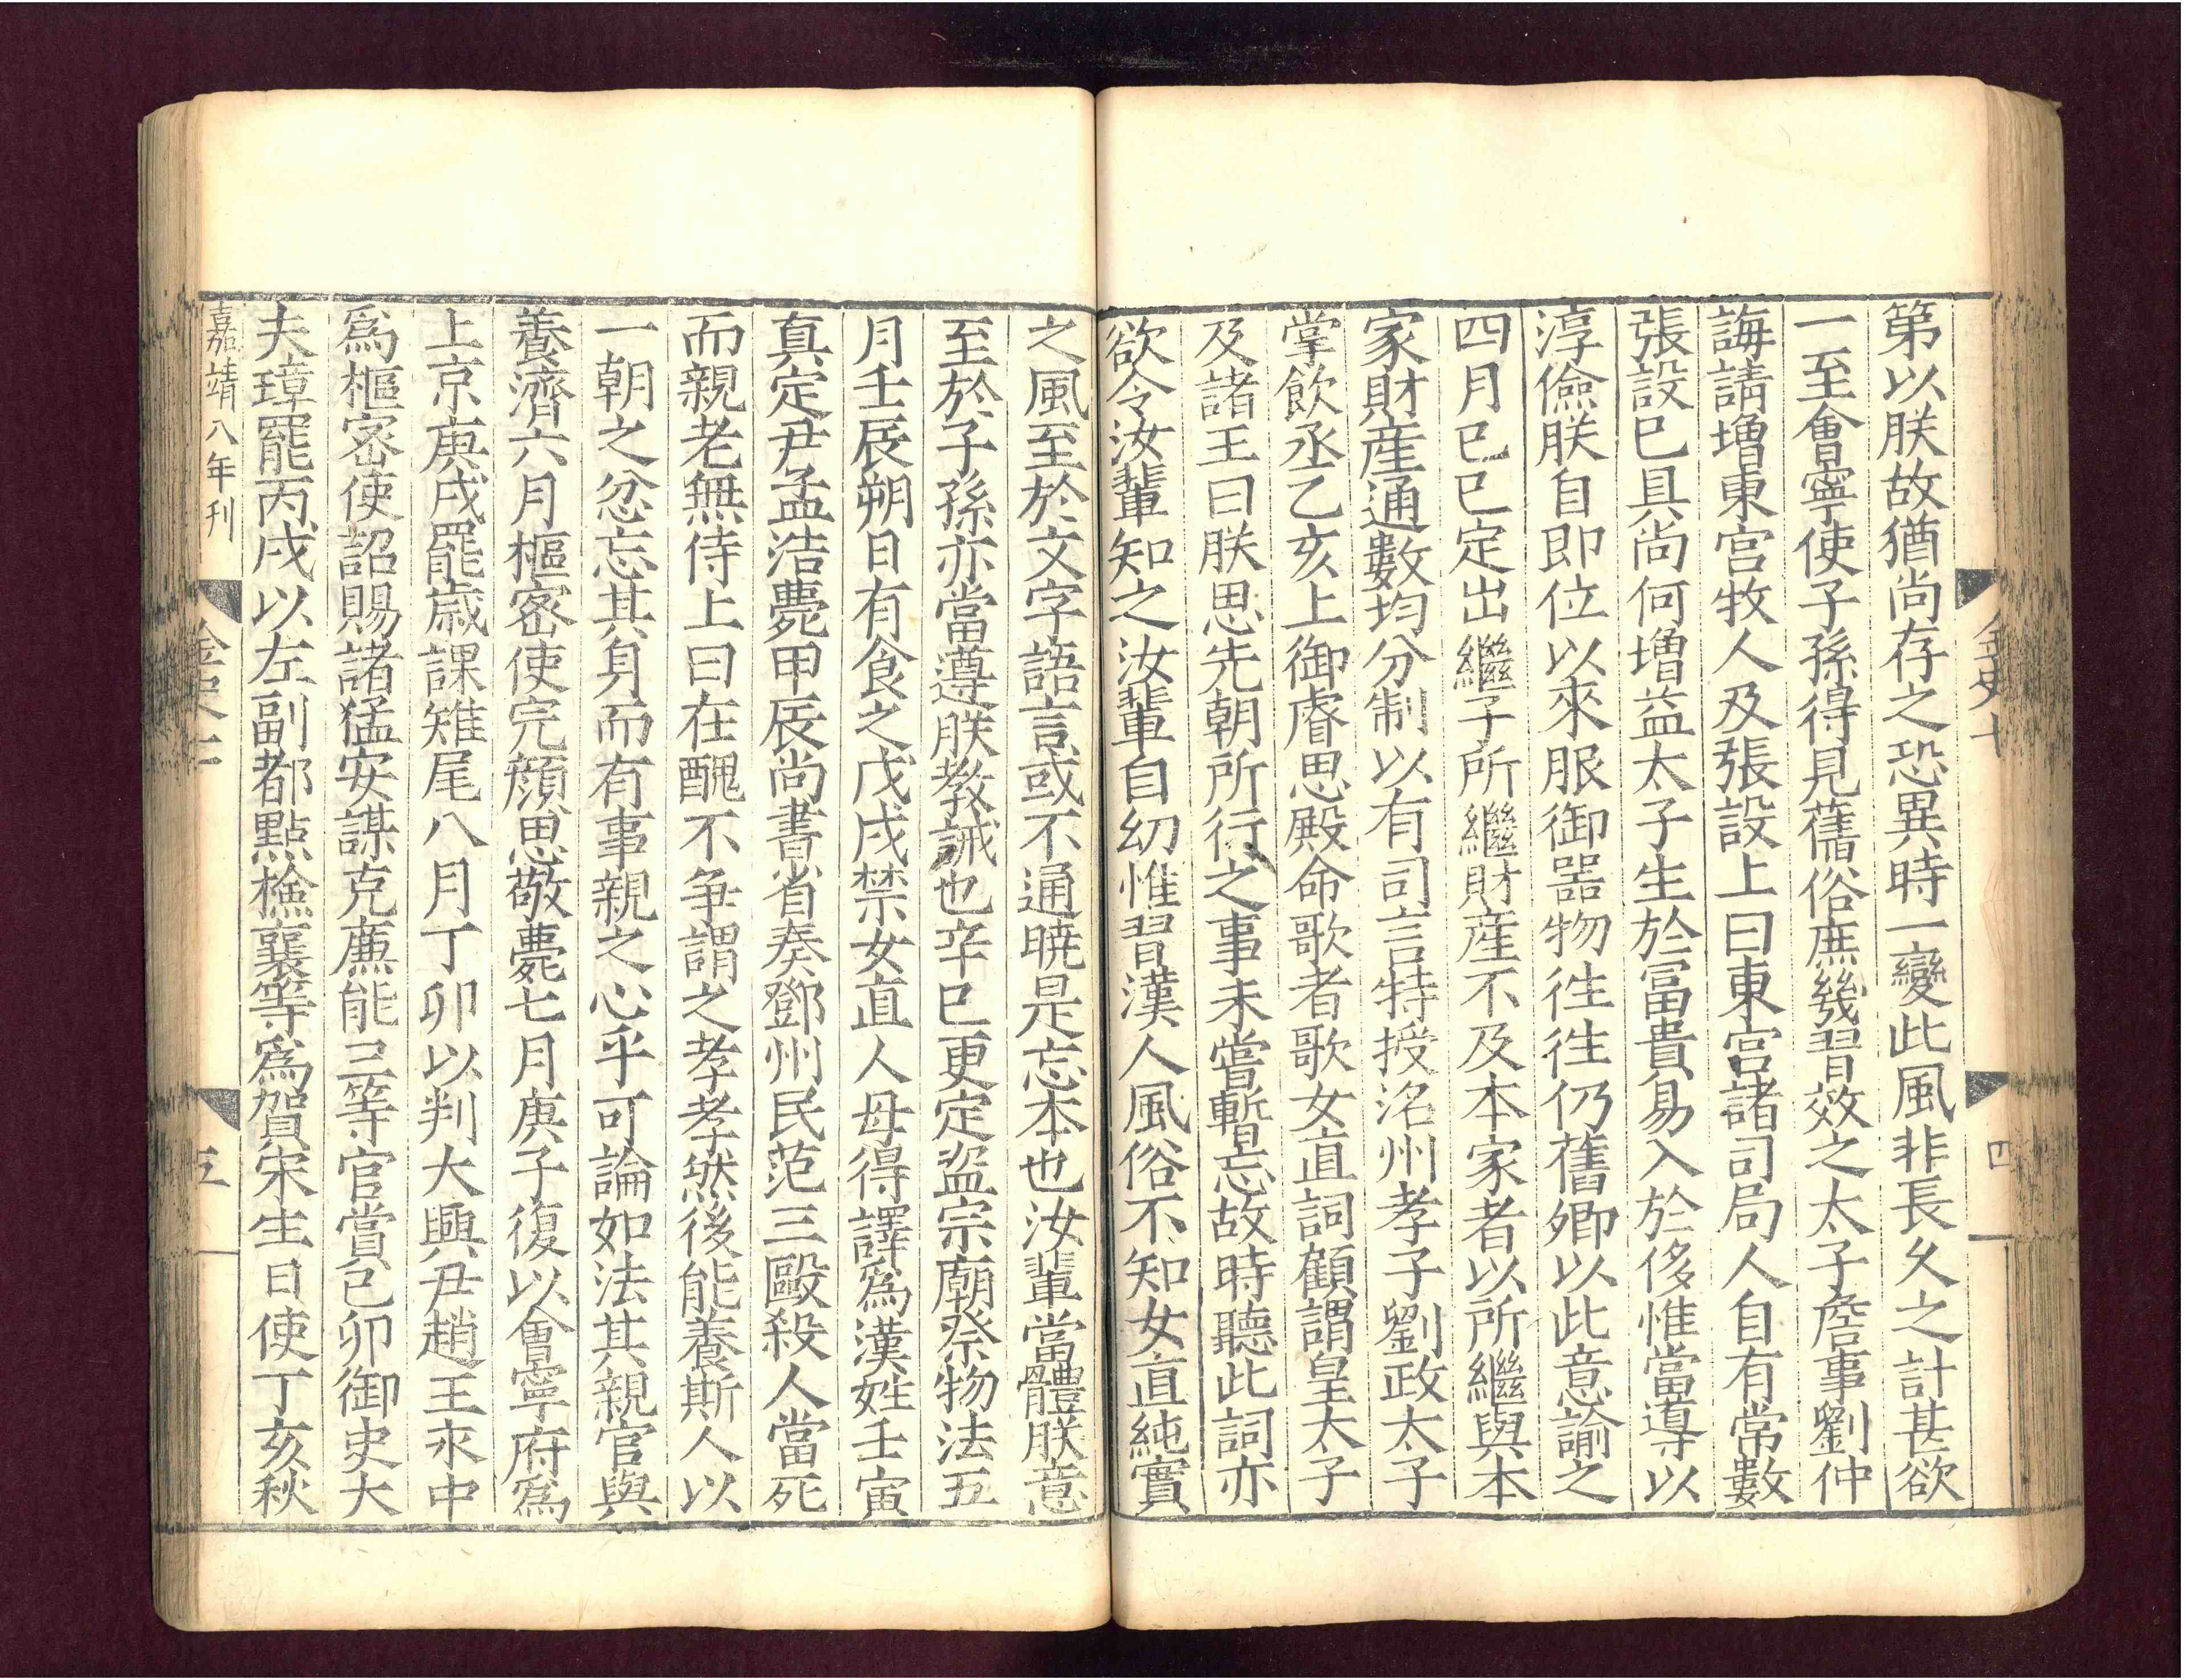 第以朕故猶尚存之恐異時一變此風非長久之計甚欲
一至會寧使子孫得見舊俗庶幾習效之太子詹事劉仲
誨請增東宮牧人及張設上曰東宮諸司局人自有常數
張設已具尚何增益太子生於富貴易入於侈惟當導以
淳儉朕自即位以來服御器物徃徃仍舊卿以此意諭之
四月己巳定出繼子所繼財産不及本家者以所繼與本
家財産通數均分制以有司言特授洺州孝子劉政太子
掌飲丞乙亥上御睿思殿命歌者歌女直詞顧謂皇太子
及諸王曰朕思先朝所行之事未嘗暫忘故時聽此詞亦
欲令汝輩知之汝輩自幼惟習漢人風俗不知女直純實
之風至於文字語言或不通曉是忘本也汝輩當體朕意
至於子孫亦當遵朕教誡也辛巳更定盜宗廟祭物法五
月壬辰朔日有食之戊戌禁女直人毋得譯爲漢姓壬寅
真定尹孟浩薨甲辰尚書省奏鄧州民范三毆殺人當死
而親老無侍上曰在醜不争謂之孝孝然後能養斯人以
一朝之忿忘其身而有事親之心乎可論如法其親官與
養濟六月樞密使完顔思敬薨七月庚子復以會寧府爲
上京庚戌罷歲課雉尾八月丁卯以判大興尹趙王永中
爲樞密使詔賜諸猛安謀克廉能三等官賞己卯御史大
夫璋罷丙戌以左副都點檢襄等爲賀宋生日使丁亥秋
嘉靖八年刊
金史七
四
五